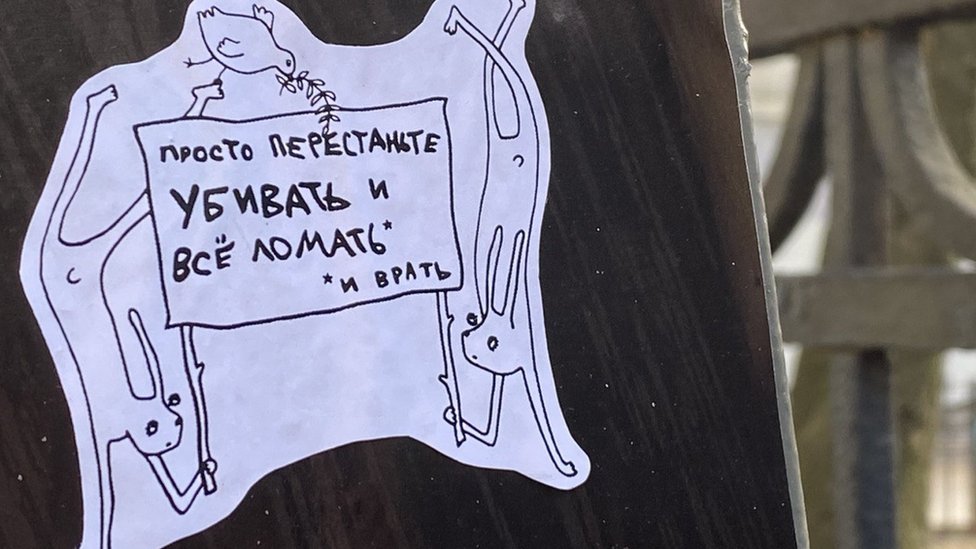 ПРОСТО ПЕРЕСТАНЬТЕ
УБИВАТЬ И
ВСЁ ЛОМАТЬ*
*И ВРАТЬ